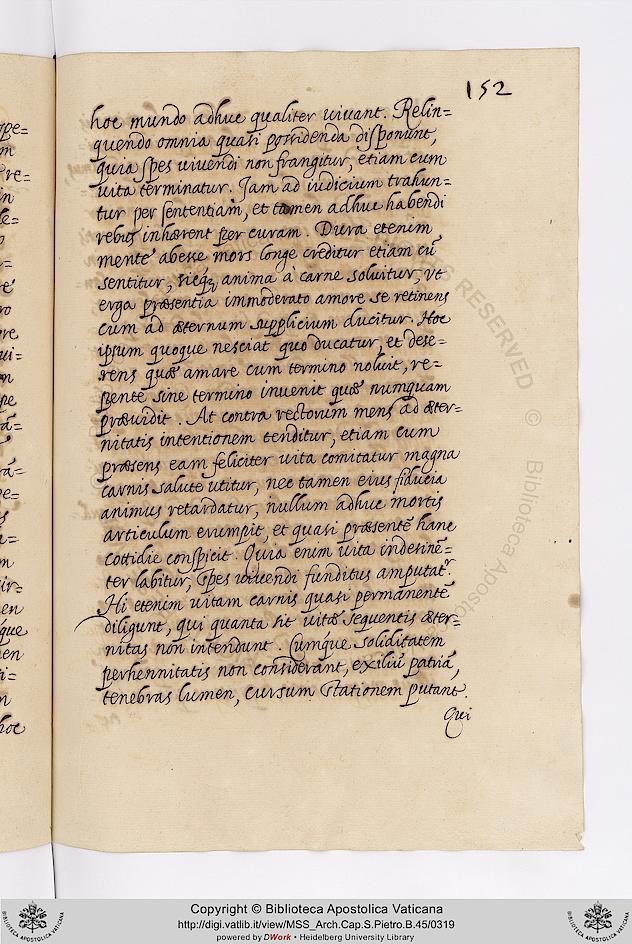 152
hoc mundo adhuc qualiter vivant. Relin=
quendo omnia quasi possidenda disponunt,
quia spes vivendi non frangitur, etiam cum
vita terminatur. Jam ad iudicium trahun=
tur per sententiam, et tamen adhuc habendi
rebus inhærent per curam. Dura etenim
mente abesse mors longe creditur etiam cū
sentitur, sicq; anima à carne soluitur, vt
erga præsentia immoderato amore se retinens
cum ad æternum supplicium ducitur. Hoc
ipsum quoque nesciat quo ducatur, et dese=
rens quæ amare cum termino noluit, re=
pente sine termino invenit quæ numquam
prævidit. At contra rectorum mens ad æter=
nitatis intentionem tenditur, etiam cum
præsens eam feliciter vita comitatur magna
carnis salute utitur, nec tamen eius fiducia
animus retardatur, nullum adhuc mortis
articulum erumpit, et quasi præsentē hanc
cottidie conspicit. Quia enim vita indesinē=
ter labitur, spes vivendi funditus amputatr.
Hi etenim vitam carnis quasi permanentē
diligunt, qui quanta sit vitæ sequentis æter=
nitas non intendunt. Cumque soliditatem
perhennitatis non considerant, exiliū patriā,
tenebras lumen, cursum stationem putant.
Qui
ope=
m
re=
n
le=
re
ro
pre
ui=
m
pe
tā=
rā=
pe=
s
a=
m
ir=
en
que
en
ti=
n
hoc
RIGHTS RESERVED © Biblioteca Apostolica
Copyright © Biblioteca Apostolica Vaticana
http://digi.vatlib.it/view/MSS_Arch.Cap.S.Pietro.B.45/0319
powered by DWork • Heidelberg University Library
BIBLIOTECA APOSTOLICA VATICANA
BIBLIOTECA APOSTOLICA VATICANA